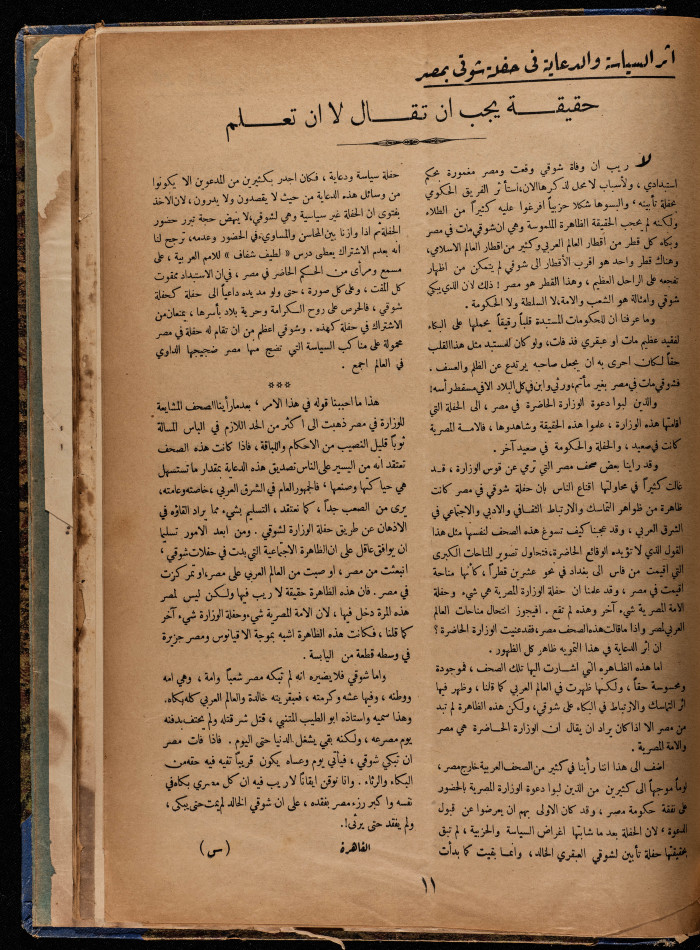 اثر السياسة والدعاية في حفلة شوقي بمصر
حقيقة يجب ان تقال لا ان تعلم
لا ريب ان وفاة شوقي وقعت ومصر مغمورة بحكم
استبدادي ، ولأسباب لا محل لذكرها الان، استأثر الفريق الحكومي
بحفلة تأبينه ، والبسوها شكلا حزبياً افرغوا عليه كثيراً من الطلاء
ولكنه لم يحجب الحقيقة الظاهرة الملموسة وهي ان شوقي مات في مصر
وبكاه كل قطر من اقطار العالم العربي وكثير من اقطار العالم الاسلامي،
وهناك قطر واحد هو اقرب الأقطار الى شوقي لم يتمكن من اظهار
تفجعه على الراحل العظيم ، وهذا القطر هو مصر ! ذلك لان الذي يبكي
شوقي وامثاله هو الشعب والامة، لا السلطة ولا الحكومة .
وما عرفنا ان للحكومات المستبدة قلباً رقيقاً يحملها على البكاء
لفقيد عظيم مات او عبقري فذ فات، ولو كان للمستبد مثل هذا القلب
حقاً لكان احرى به ان يجعل صاحبه يرتدع عن الظلم والعسف .
فشوقي مات في مصر بغير مأتم، ورثي وابن في كل البلاد الا في مسقط رأسه!
والذين لبوا دعوة الوزارة الحاضرة في مصر ، الى الحفلة التي
اقامتها هذه الوزارة ، علموا هذه الحقيقة وشاهدوها ، فالامة المصرية
كانت في صعيد ، والحفلة والحكومة في صعيد آخر .
وقد رأينا بعض صحف مصر التي ترمي عن قوس الوزارة ، قد
غالت كثيراً في محاولتها اقناع الناس بان حفلة شوقي في مصر كانت
ظاهرة من ظواهر التماسك والارتباط الثقافي والادبي والاجتماعي في
الشرق العربي ، وقد عجبنا كيف تسوغ هذه الصحف لنفسها مثل هذا
القول الذي لا تؤيده الوقائع الحاضرة، فتحاول تصوير المناحات الكبرى
التي اقيمت من فاس الى بغداد في نحو عشرين قطراً ، كأنها مناحة
اقيمت في مصر ، وقد علمنا ان حفلة الوزارة المصرية هي شيء وحفلة
الامة المصرية شيء آخر وهذه لم تقع . افيجوز انتحال مناحات العالم
العربي لمصر واذا ماقالت هذه الصحف مصر، فقد عنيت الوزارة الحاضرة ؟
ان اثر الدعاية في هذا التمويه ظاهر كل الظهور .
اما هذه الظاهره التي اشارت اليها تلك الصحف ، فموجودة
ومحسوسة حقاً ، ولكنها ظهرت في العالم العربي كما قلنا ، وظهر فيها
اثر التماسك والارتباط في البكاء على شوقي، ولكن هذه الظاهرة لم تبد
من مصر الا اذا كان يراد ان يقال ان الوزارة الحاضرة هي مصر
والامة المصرية .
اضف الى هذا اننا رأينا في كثير من الصحف العربية خارج مصر،
لوماً موجهاً الى كثيرين من الذين لبوا دعوة الوزارة المصرية بالحضور
على نفقة حكومة مصر ، وقد كان الاولى بهم ان يعرضوا عن قبول
الدعوة ' لان الحفلة بعد ما شابتها اغراض السياسة والحزبية ، لم تبق
بحقيقتها حفلة تأبين لشوقي العبقري الخالد، وانما بقيت كما بدأت
حفلة سياسة ودعاية ، فكان اجدر بكثيرين من المدعوين الا يكونوا
من وسائل هذه الدعاية من حيث لا يقصدون ولا يدرون، لان الاخذ
بفتوى ان الحفلة غير سياسية وهي لشوقي، لا ينهض حجة تبرر حضور
الحفلة ثم اذا وازنا بين المحاسن والمساوئ، في الحضور وعدمه، ترجح لنا
انه بعدم الاشتراك يعطى درس « لطيف شفاف » للامم العربية ، على
مسمع ومرأى من الحكم الحاضر في مصر ، في ان الاستبداد ممقوت
كل المقت ، وعلى كل صورة ، حتى ولو مد يده داعياً الى حفلة كحفلة
شوقي ، فالحرص على روح الكرامة وحرية بلاد بأسرها ، يمنعان من
الاشتراك في حفلة كهذه . وشوقي اعظم من ان تقام له حفلة في مصر
محمولة على مناكب السياسة التي تضج منها مصر ضجيجها الداوي
في العالم اجمع .
***
هذا ما احببنا قوله في هذا الامر ' بعدما رأينا الصحف المشايعة
للوزارة في مصر ذهبت الى اكثر من الحد اللازم في الباس المسألة
ثوباً قليل النصيب من الاحكام واللباقة ، فاذا كانت هذه الصحف
تعتقد انه من اليسير على الناس تصديق هذه الدعاية بمقدار ما تستسهل
هي حياكتها وصنعها ' فالجمهور العام في الشرق العربي ، خاصته وعامته،
يرى من الصعب جداً ، كما نعتقد ، التسليم بشيء مما يراد القاؤه في
الاذهان عن طريق حفلة الوزارة لشوقي . ومن ابعد الامور تسليما
ان يوافق عاقل على ان الظاهرة الاجتماعية التي بدت في حفلات شوقي ،
انبعثت من مصر ، او صبت من العالم العربي على مصر، او تمركزت
في مصر . فان هذه الظاهرة حقيقة لا ريب فيها ولكن ليس لمصر
هذه المرة دخل فيها ، لان الامة المصرية شيء وحفلة الوزارة شيء آخر
كما قلنا ، فكانت هذه الظاهرة اشبه بموجة الاقيانوس ومصر جزيرة
في وسطه قطعة من اليابسة .
واما شوقي فلا يضيره انه لم تبكه مصر شعباً وامة ، وهي امه
ووطنه ، وفيها عشه وكرمته ، فعبقريته خالدة والعالم العربي كله بكاه،
وهذا سميه واستاذه ابو الطيب المتنبي ، قتل شر قتله ولم يحتف بدفنه
يوم مصرعه ، ولكنه بقي يشغل الدنيا حتى اليوم . فاذا فات مصر
ان تبكي شوقي ، فيأتي يوم وعساه يكون قريباً تفيه فيه حقه من
البكاء والرثاء . وانا نوقن ايقاناً لا ريب فيه ان كل مصري بكاه في
نفسه واكبر رزء مصر بفقده ، على ان شوقي الخالد لم يمت حتى يبكى ،
ولم يفقد حتى يرثى!.
القاهرة (س)
١١